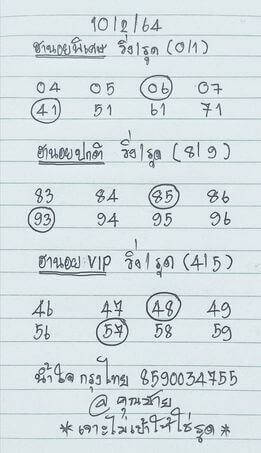 10/2/64
ฮานอยพิเศษ วิ่ง/รูด (0/1)
04 05 06 07
41 51 61 71
ฮานอยปกติ วิ่ง/รูด (8/9)
83 84 85 86
93 94 95 96
ฮานอย VIP วิ่ง/รูด (4/5)
46 47 48 49
56 57 58 59
น้ำใจ กรุงไทย 8590034755
@ คุณชาย
* เจาะไม่เข้าให้ใช้รูด *